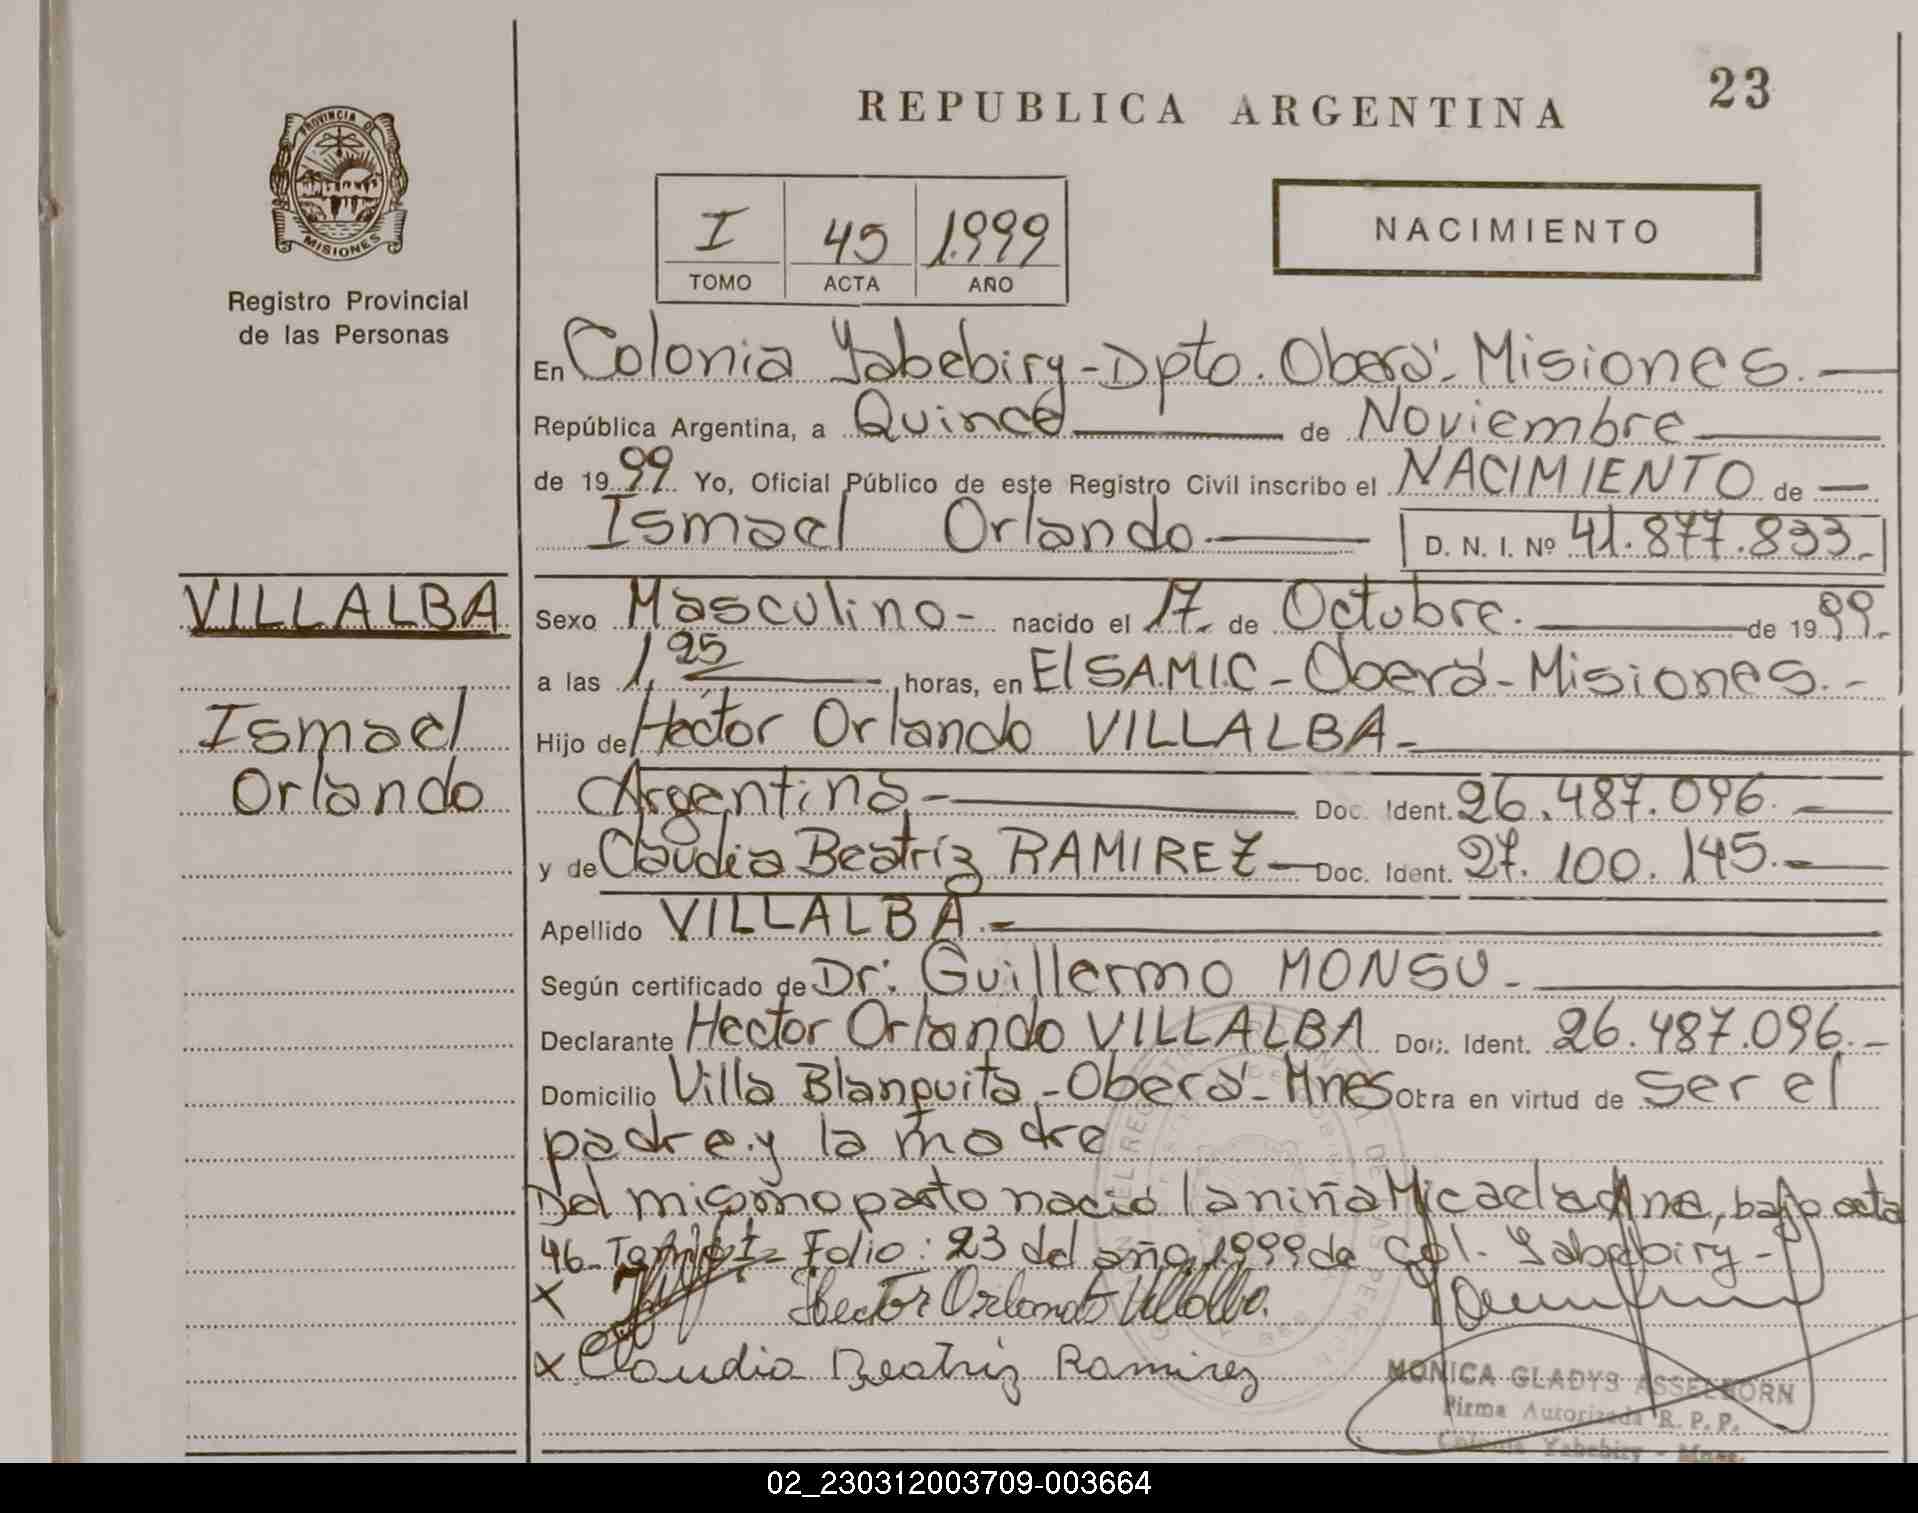 REPUBLICA ARGENTINA
23
PROVINCIA DE
MISIONES
Registro Provincial
de las Personas
I 45 1.999
TOMO ACTA AÑO
NACIMIENTO
En Colonia Yabebiry - Dpto. Oberá - Misiones.
República Argentina, a Quince de Noviembre
de 19 99 Yo, Oficial Público de este Registro Civil inscribo el NACIMIENTO de
Ismael Orlando D. N. I. Nº 41.877.833.-
VILLALBA
Ismael
Orlando
Sexo Masculino - nacido el 17 de Octubre. de 19 99.-
a las 1,25 horas, en El SAMIC - Oberá - Misiones.-
Hijo de Hector Orlando VILLALBA -
Argentina - Doc. Ident. 26.487.096.
y de Claudia Beatriz RAMIREZ - Doc. Ident. 27.100.145.-
Apellido VILLALBA.-
Según certificado de Dr: Guillermo MONSU -
Declarante Hector Orlando VILLALBA Doc. Ident. 26.487.096.-
Domicilio Villa Blanquita - Oberá - Mnes Obra en virtud de ser el
padre y la madre
Del mismo parto nació la niña Micaela Ana, bajo acta
46 - Tomo: I - Folio: 23 del año 1999 de Col. Yabebiry -
x Hector Orlando Villalba.
x Claudia Beatriz Ramirez
MONICA GLADYS ASSELBORN
Firma Autorizada R. P. P.
Colonia Yabebiry - Mnes.
02_230312003709-003664